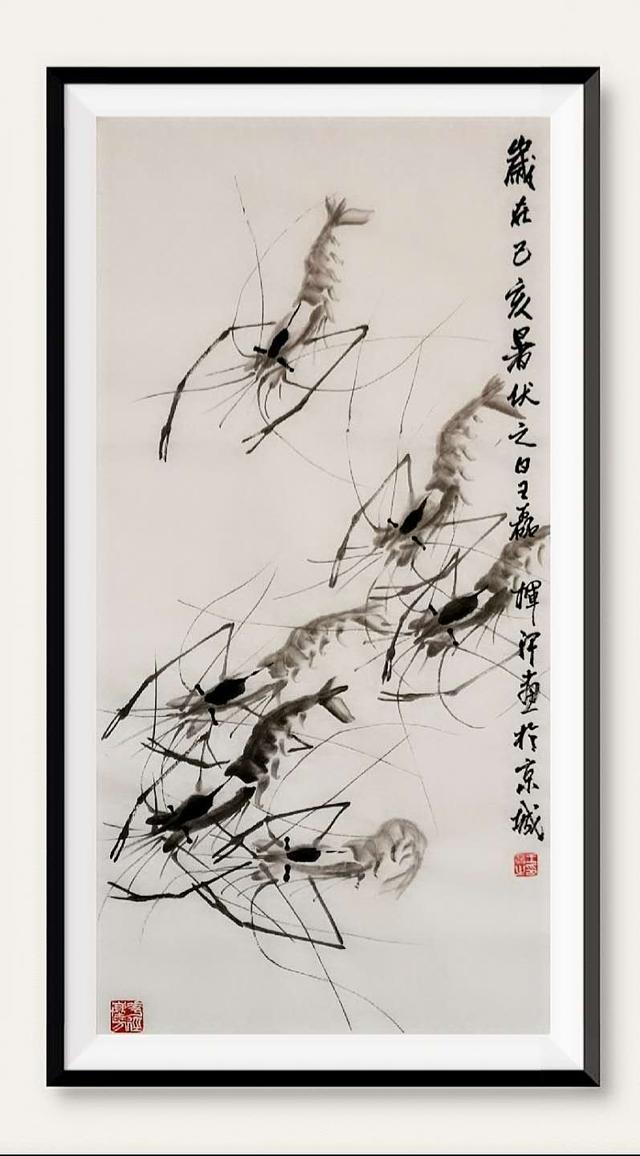 歲在己亥暑伏之日王磊揮汗畫於京城